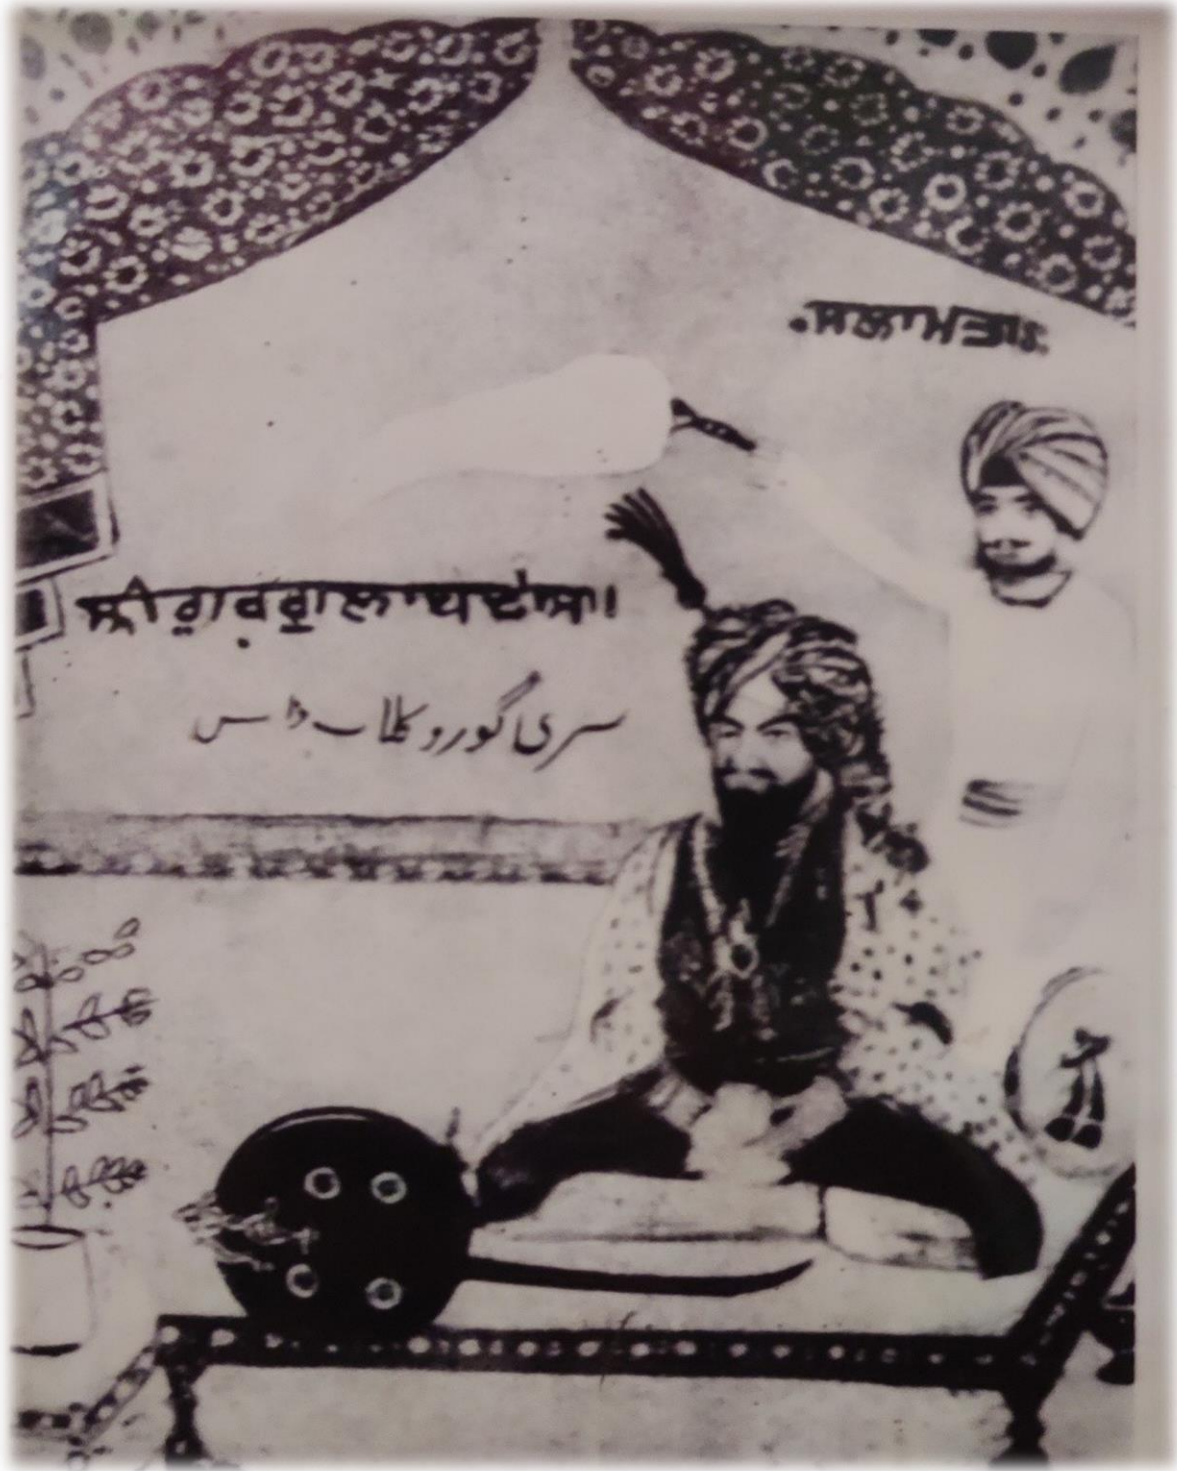 ਸ੍ਰੀਗੁਰੁਗੁਲਾਬਦਾਸ॥
سری گورو گلاب داس